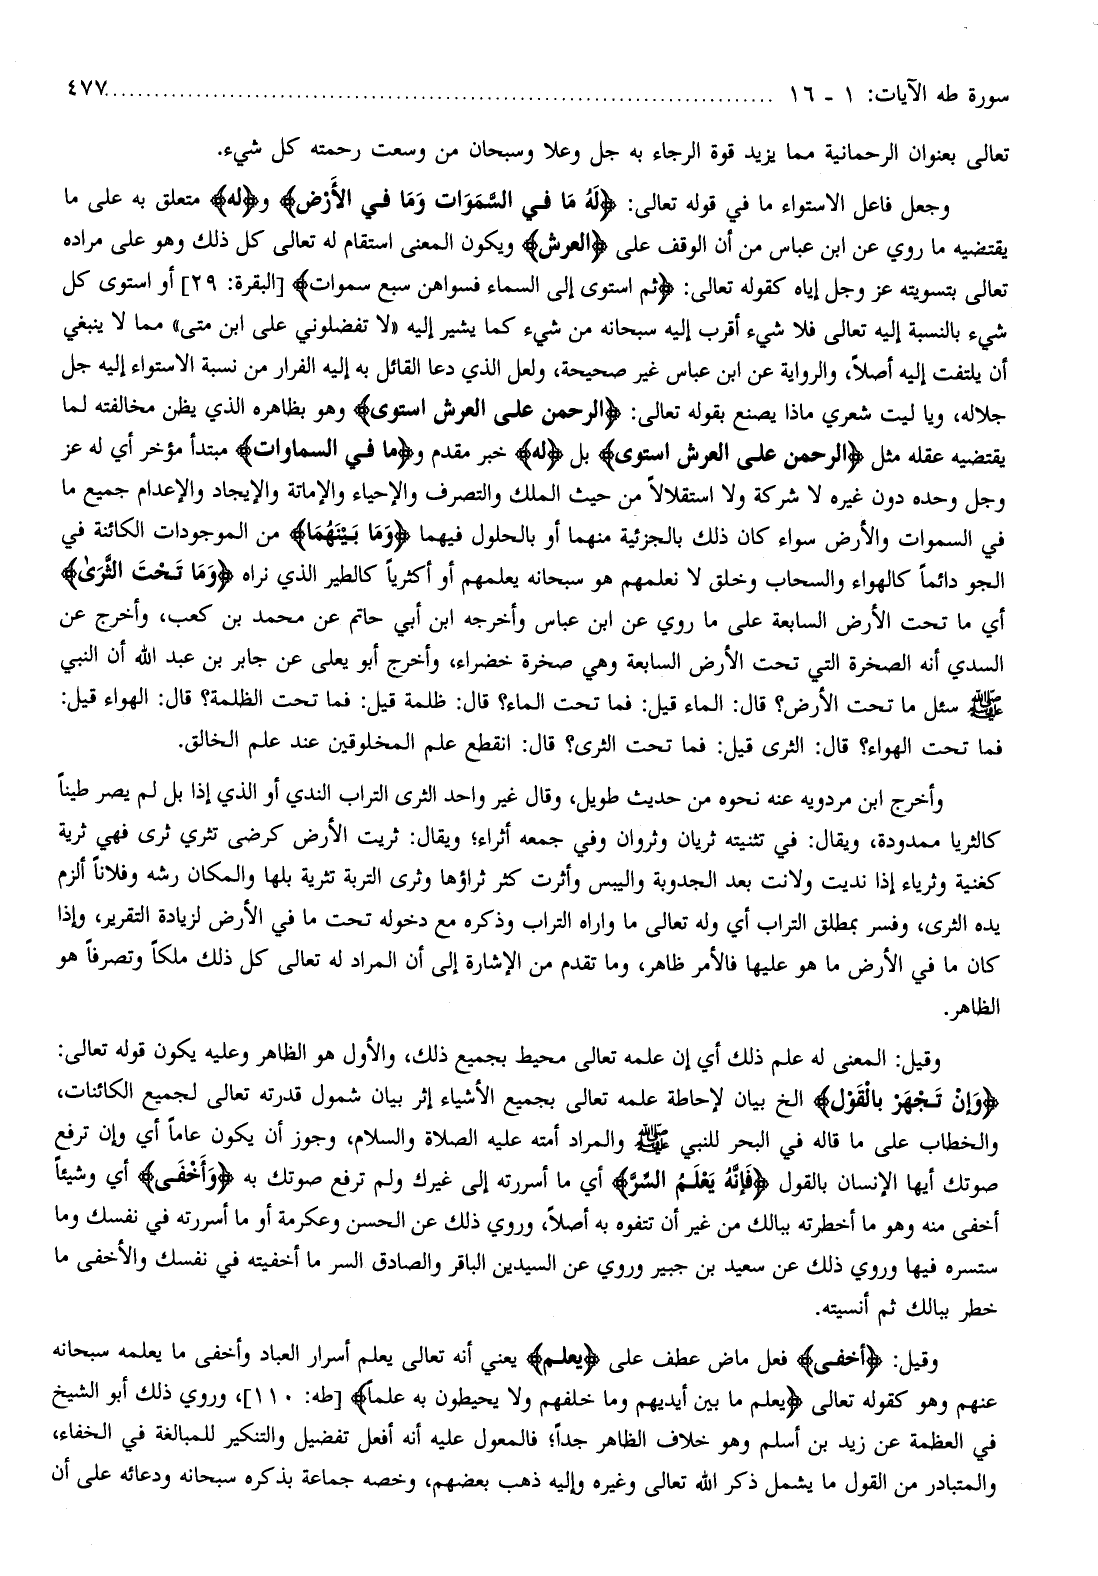 سورة طه الآيات: ١ - ١٦ ................................................ ٤٧٧
تعالى بعنوان الرحمانية مما يزيد قوة الرجاء به جل وعلا وسبحان من وسعت رحمته كل شيء.
وجعل فاعل الاستواء ما في قوله تعالى: ﴿لَهُ مَا في السَّمَوَات وَمَا في الأَرْض﴾ و﴿له﴾ متعلق به على ما
يقتضيه ما روي عن ابن عباس من أن الوقف على ﴿العرش﴾ ويكون المعنى استقام له تعالى كل ذلك وهو على مراده
تعالى بتسويته عز وجل إياه كقوله تعالى: ﴿ثم استوى إلى السماء فسواهن سبع سموات﴾ [البقرة: ٢٩] أو استوى كل
شيء بالنسبة إليه تعالى فلا شيء أقرب إليه سبحانه من شيء كما يشير إليه «لا تفضلوني على ابن متى» مما لا ينبغي
أن يلتفت إليه أصلاً، والرواية عن ابن عباس غير صحيحة، ولعل الذي دعا القائل به إليه الفرار من نسبة الاستواء إليه جل
جلاله، ويا ليت شعري ماذا يصنع بقوله تعالى: ﴿الرحمن على العرش استوى﴾ وهو بظاهره الذي يظن مخالفته لما
يقتضيه عقله مثل ﴿الرحمن على العرش استوى﴾ بل ﴿له﴾ خبر مقدم و﴿ما في السماوات﴾ مبتدأ مؤخر أي له عز
وجل وحده دون غيره لا شركة ولا استقلالاً من حيث الملك والتصرف والإحياء والإماتة والإيجاد والإعدام جميع ما
في السموات والأرض سواء كان ذلك بالجزئية منهما أو بالحلول فيهما ﴿وَمَا بَيْنَهُمَا﴾ من الموجودات الكائنة في
الجو دائماً كالهواء والسحاب وخلق لا نعلمهم هو سبحانه يعلمهم أو أكثرياً كالطير الذي نراه ﴿وَمَا تَحْتَ الثَّرَىٰ﴾
أي ما تحت الأرض السابعة على ما روي عن ابن عباس وأخرجه ابن أبي حاتم عن محمد بن كعب، وأخرج عن
السدي أنه الصخرة التي تحت الأرض السابعة وهي صخرة خضراء، وأخرج أبو يعلى عن جابر بن عبد الله أن النبي
ﷺ سئل ما تحت الأرض؟ قال: الماء قيل: فما تحت الماء؟ قال: ظلمة قيل: فما تحت الظلمة؟ قال: الهواء قيل:
فما تحت الهواء؟ قال: الثرى قيل: فما تحت الثرى؟ قال: انقطع علم المخلوقين عند علم الخالق.
وأخرج ابن مردويه عنه نحوه من حديث طويل، وقال غير واحد الثرى التراب الندي أو الذي إذا بل لم يصر طيناً
كالثريا ممدودة، ويقال: في تثنيته ثريان وثروان وفي جمعه أثراء؛ ويقال: ثريت الأرض كرضى تثري ثرى فهي ثرية
كغنية وثرياء إذا نديت ولانت بعد الجدوبة واليبس وأثرت كثر ثراؤها وثرى التربة تثرية بلها والمكان رشه وفلاناً ألزم
يده الثرى، وفسر بمطلق التراب أي وله تعالى ما واراه التراب وذكره مع دخوله تحت ما في الأرض لزيادة التقرير، وإذا
كان ما في الأرض ما هو عليها فالأمر ظاهر، وما تقدم من الإشارة إلى أن المراد له تعالى كل ذلك ملكاً وتصرفاً هو
الظاهر.
وقيل: المعنى له علم ذلك أي إن علمه تعالى محيط بجميع ذلك، والأول هو الظاهر وعليه يكون قوله تعالى:
﴿وَإنْ تَجْهَرْ بالْقَوْل﴾ الخ بيان لإحاطة علمه تعالى بجميع الأشياء إثر بيان شمول قدرته تعالى لجميع الكائنات،
والخطاب على ما قاله في البحر للنبي ﷺ والمراد أمته عليه الصلاة والسلام، وجوز أن يكون عاماً أي وإن ترفع
صوتك أيها الإنسان بالقول ﴿فَإنَّهُ يَعْلَمُ السِّرَّ﴾ أي ما أسررته إلى غيرك ولم ترفع صوتك به ﴿وَأَخْفَى﴾ أي وشيئاً
أخفى منه وهو ما أخطرته ببالك من غير أن تتفوه به أصلاً، وروي ذلك عن الحسن وعكرمة أو ما أسررته في نفسك وما
ستسره فيها وروي ذلك عن سعيد بن جبير وروي عن السيدين الباقر والصادق السر ما أخفيته في نفسك والأخفى ما
خطر ببالك ثم أنسيته.
وقيل: ﴿أخفى﴾ فعل ماض عطف على ﴿يعلم﴾ يعني أنه تعالى يعلم أسرار العباد وأخفى ما يعلمه سبحانه
عنهم وهو كقوله تعالى ﴿يعلم ما بين أيديهم وما خلفهم ولا يحيطون به علما﴾ [طه: ١١٠]، وروي ذلك أبو الشيخ
في العظمة عن زيد بن أسلم وهو خلاف الظاهر جداً؛ فالمعول عليه أنه أفعل تفضيل والتنكير للمبالغة في الخفاء،
والمتبادر من القول ما يشمل ذكر الله تعالى وغيره وإليه ذهب بعضهم، وخصه جماعة بذكره سبحانه ودعائه على أن